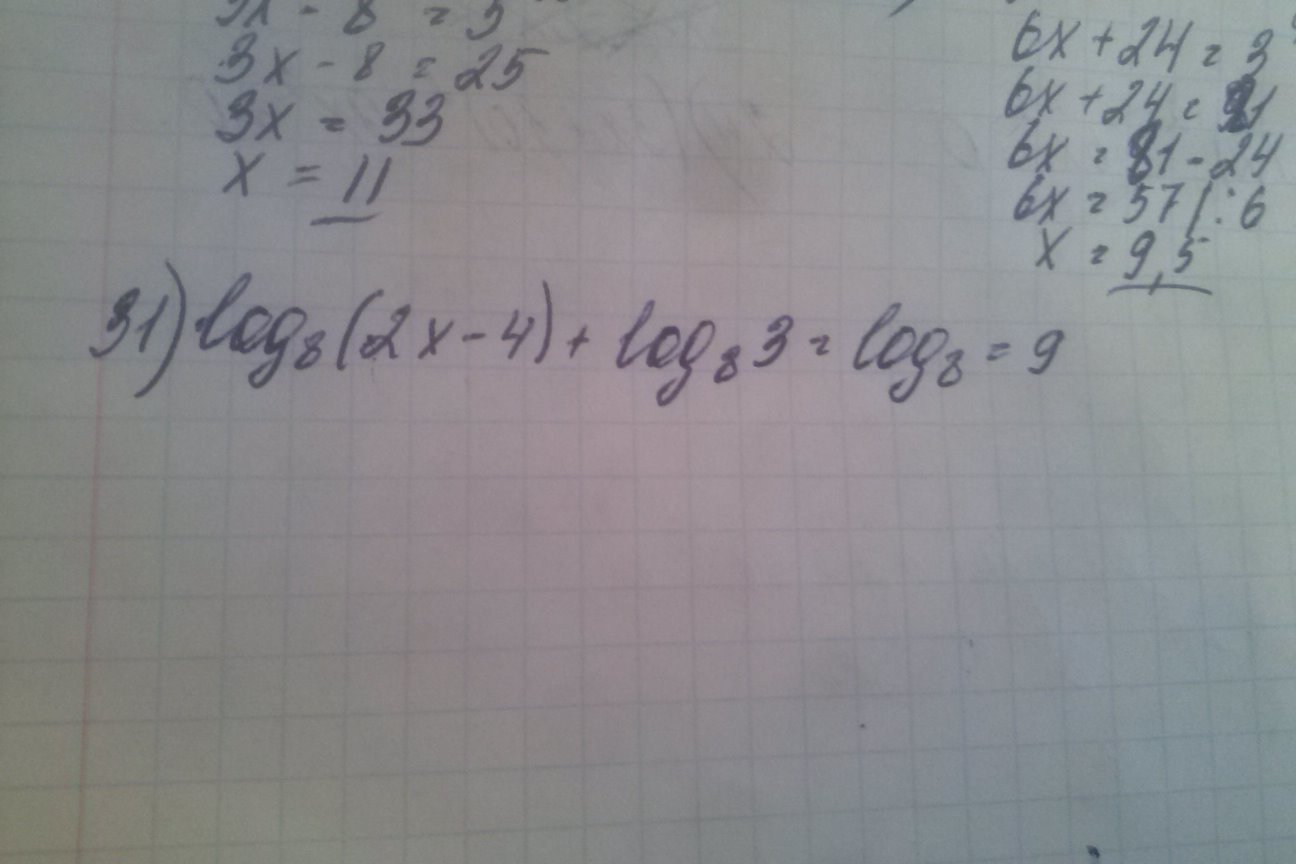 3x - 8 = 5
3x - 8 = 25
3x = 33
x = 11
6x + 24 = 3
6x + 24 = 81
6x = 81 - 24
6x = 57 | : 6
x = 9,5
31) log₈(2x - 4) + log₈ 3 = log₈ = 9